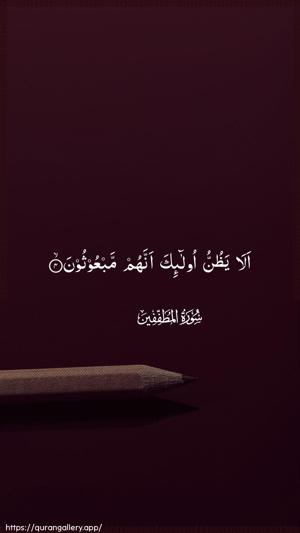 اَلَا يَظُنُّ اُولٰٓئِكَ اَنَّهُمْ مَّبْعُوْثُوْنَۙ ۴
سُوْرَةُ الْمُطَفِّفِيْنَ
https://qurangallery.app/